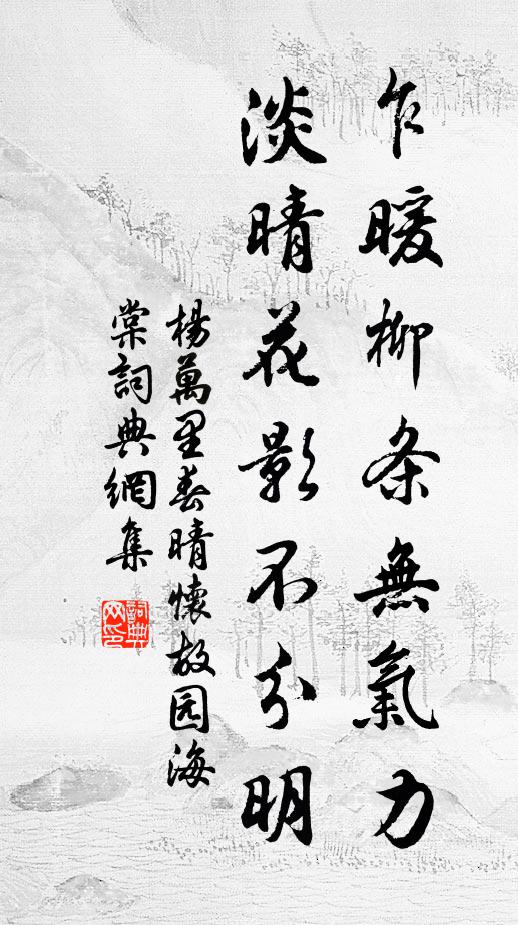 乍暖柳条無氣力
淡晴花影不分明
楊萬里春晴懷故园海
棠詞典網集
詞典
网印